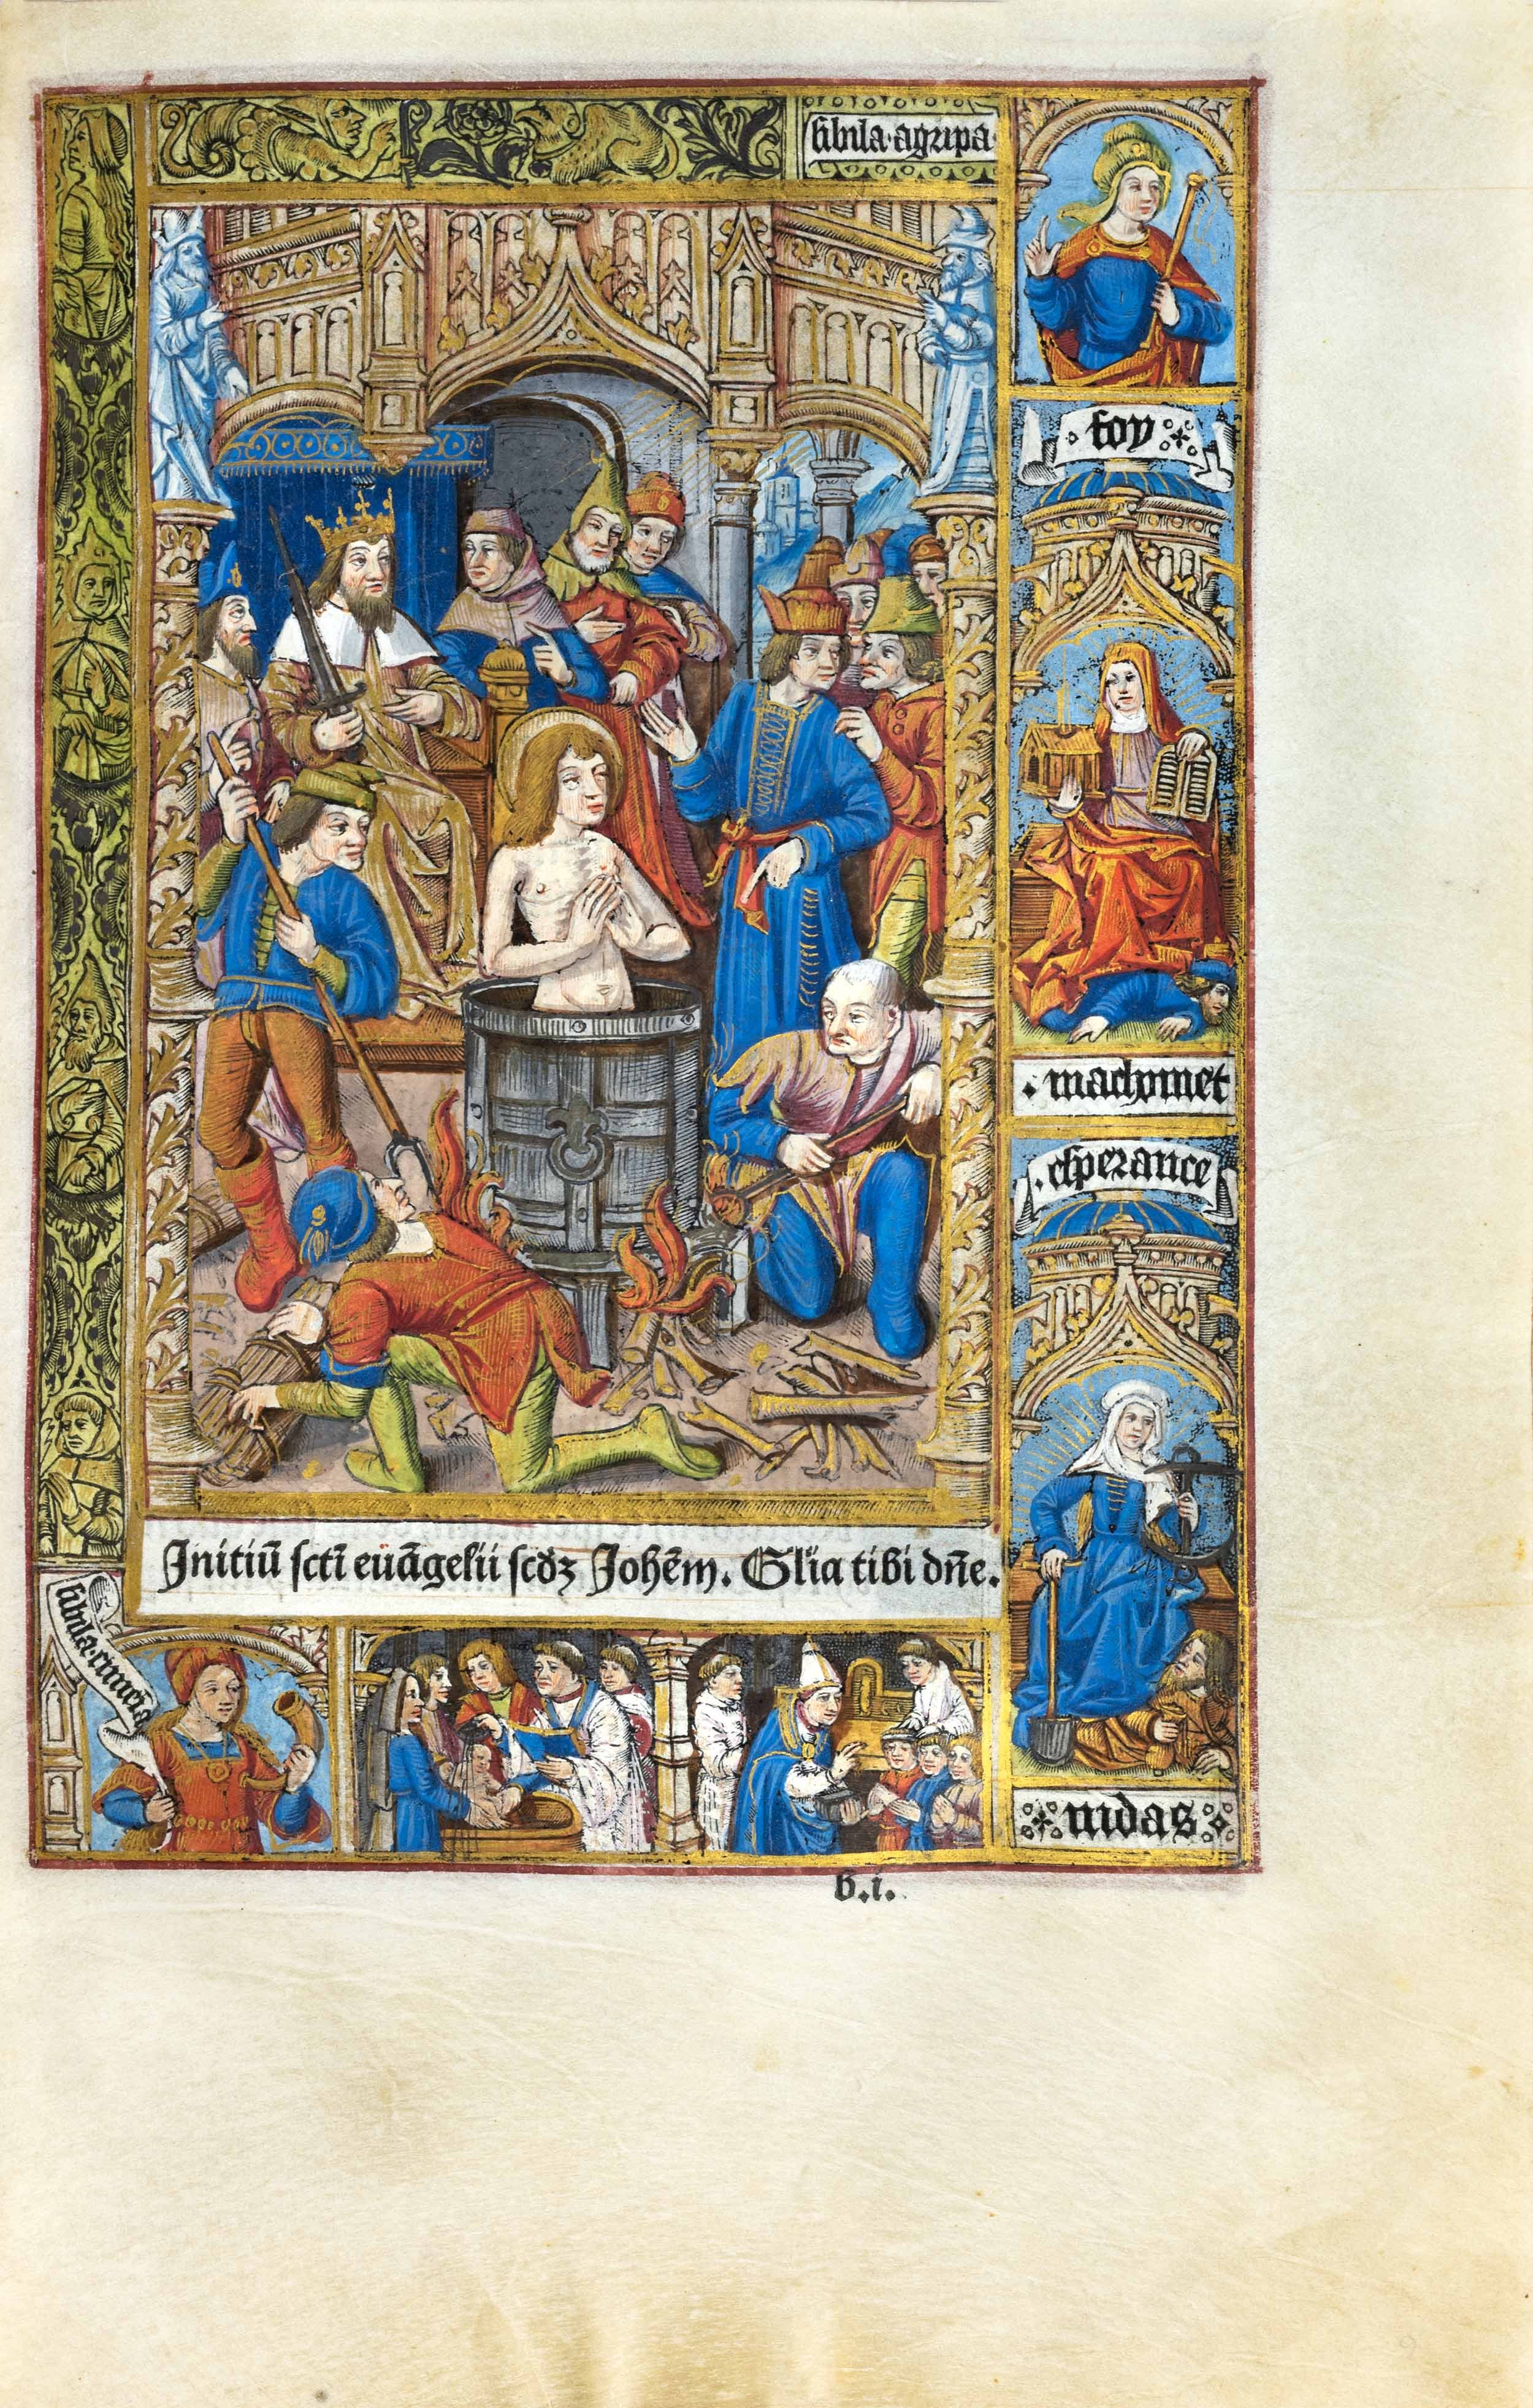 sibila·agripa·
foy
·machomet
·esperance
iudas
Initiū sctī euāgelii scd'z Johēm. Glīa tibi dn̄e.
b.i.